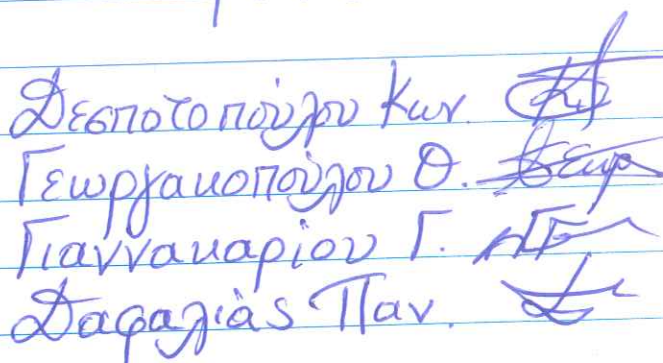 Δεσποτοπούλου Κων.
Γεωργακοπούλου Θ.
Γιαννακαρίου Γ.
Δαφαλιάς Παν.